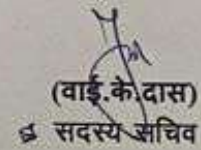 (वाई.के.दास)
सदस्य सचिव